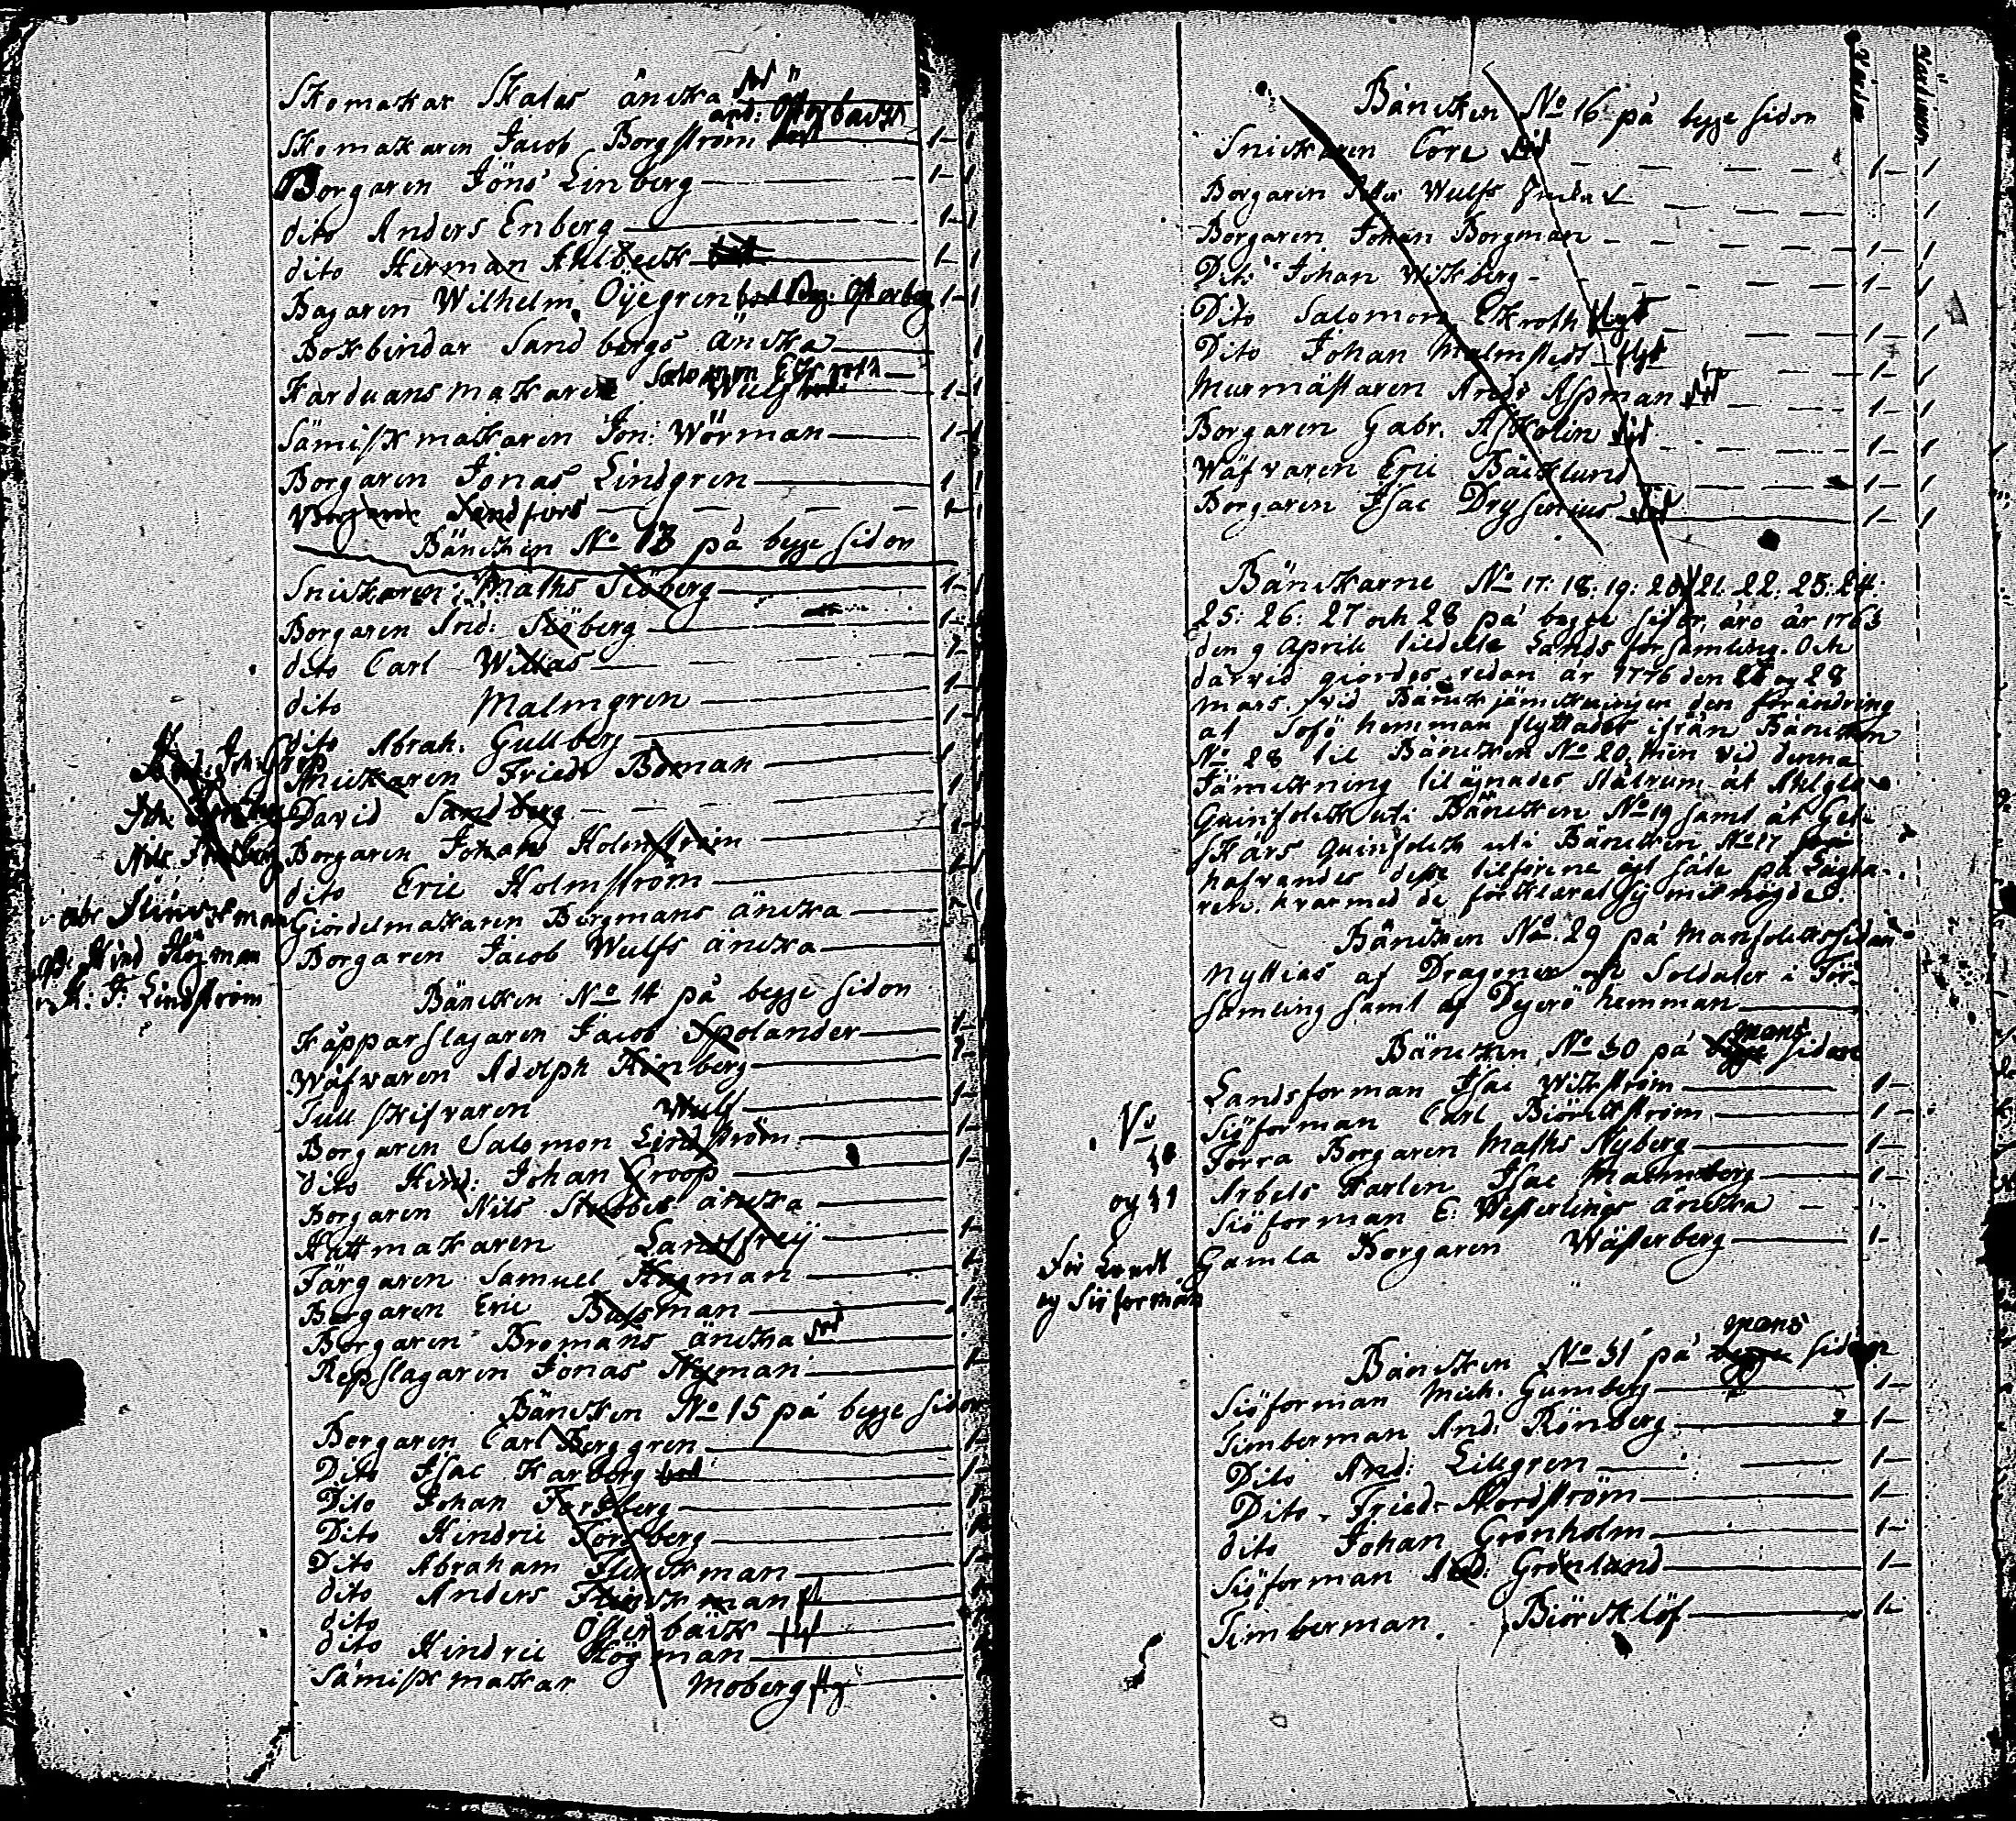 Skomakar Skalas äncka död
and: Österback
Skomakaren Jacob Borgström död 1 1
Borgaren Jöns Linberg 1 1
dito Anders Enberg 1 1
dito Herman Ahlbeck död 1 1
Bagaren Wilhelm Öÿegren död Borg. Österberg 1 1
Bokbindar Sandbergs äncka 1
Salomon Ekroth
Karduansmakaren Wulf 1 1
Sämiskmakaren Jon: Wörman 1 1
Borgaren Jonas Lindgren 1 1
Borgaren Sandfors 1 1
Bäncken No 13 på begge sidor
Snickaren Maths Siöberg 1 1
Borgaren Frid: Siöberg 1
dito Carl Willas 1
dito Malmgren 1
dito Abrah. Gullberg 1
Snickaren Friedr Boman 1
David Sandberg 1
Borgaren Johans Holmström 1
dito Eric Holmström 1
Giördelmakaren Bergmans äncka 1
Borgaren Jacob Wulfs äncka 1
Abr Flinckman
Hind Högman
J: Lindström
Bäncken No 14 på begge sidor
Kåpparslagaren Jacob Spolander 1
Wäfvaren Adolph Rönberg 1
Tullskrifvaren Wulf 1
Borgaren Salomon Lindström 1
dito Hind: Johan Groop 1
Borgaren Nils Stubbes äncka
Hattmakaren Landtfreij 1
Färgaren Samuel Hagman 1
Borgaren Eric Busman 1
Borgaren Bromans äncka död
Repslagaren Jonas Nyman 1
Bäncken No 15 på begge sidor
Borgaren Carl Berggren 1
Dito Isac Karberg död 1
Dito Johan Forsberg 1
Dito Hindric Forsberg 1
Dito Abraham Flinckman 1
dito Anders Flinckman 1
dito Österbäck 1
dito Hindric Högman 1
Sämiskmakar Moberg 1
Karlar Qvinnor
Bäncken No 16 på begge sidor
Snickaren Core död 1 1
Borgaren Wulfs Encka 1
Borgaren Johan Borgman 1 1
Dito Johan Wikberg 1 1
Dito Salomon Ekroth flyt 1 1
Dito Johan Malmsted flyt 1 1
Murmästaren Ands Aspman död 1 1
Borgaren Gabr. Askolin död 1 1
Wäfvaren Eric Bäcklund 1 1
Borgaren Isac Drysenius död 1 1
Bänckarne No 17: 18: 19: 20: 21: 22: 23: 24:
25: 26: 27 och 28 på begge sidor, äro år 1763
den 9 Aprill tildelte Lands församling. Och
därvid giordes sedan år 1776 den 27 og 28
mars. vid Bänckjämckningen den förändring
at Sofö hemman flyttades ifrån Bäncken
No 28 til Bäncken No 20, men vid denna
Jämckning tilägnades stålrum åt Ahlglo
Quinfolck uti Bäncken No 19 samt åt Geke
skärs quinfolck uti Bäncken No 17
hafvandes desse tilförene ägt säte på Lägta-
ren. hvarmed de förklarat sig wara nögde.
Bäncken No: 29 på Manfolckssidan
Nyttias af Dragoner och Soldater i För-
samling samt af Degerö hemman
Bäncken No 30 på mans sidan
Landsforman Isac Wikström 1
Siöforman Carl Biörckström 1
Förra Borgaren Maths Nyberg 1
Arbets Karlen Isac Malmberg 1
Siöforman E: Westerlings äncka
Gamla Borgaren Wästerberg 1
No
30
og 31
För Landt
og Siöforman
Bäncken No 31 på mans sidan
Siöforman Mich. Gumberg 1
Timberman And: Rönberg 1
Dito And: Lillgren 1
Dito Friedr Nordström 1
dito Johan Grönholm 1
Siöforman And: Grönlund 1
Timberman Biörcklöf 1